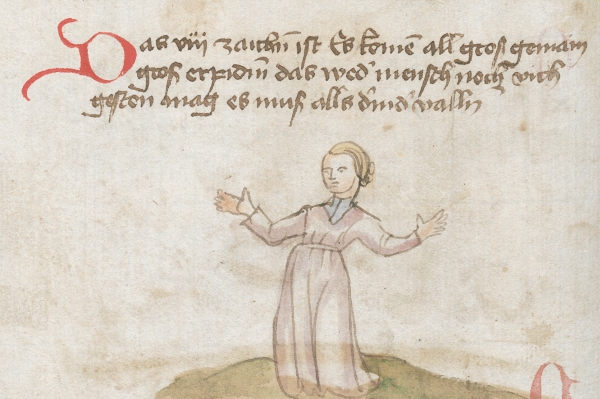 Das viij zaichñ ist Es komẽ all gros gemain
gros erpidin̄ das wed' mensch noch vich
gesten mag es mus alls d'nid' valln